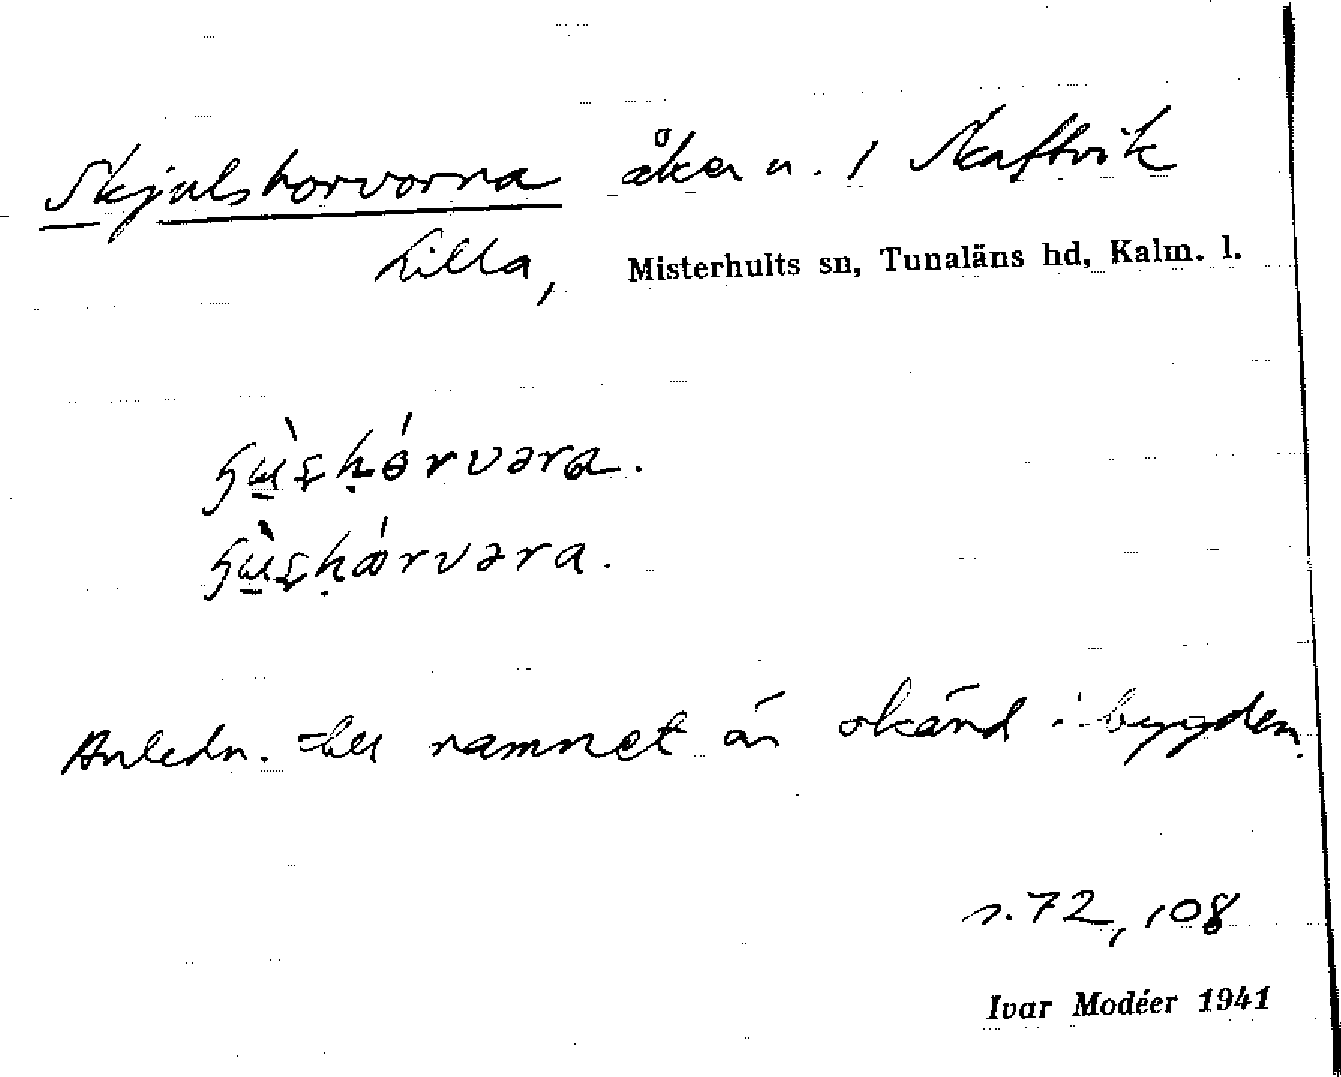 Skjulshorvorna åker u. 1 Skaftvik
Lilla, Misterhults sn, Tunaläns hd, Kalm. l.
Anledn. till namnet är okänd i bygden.
s. 72, 108
Ivar Modéer 1941